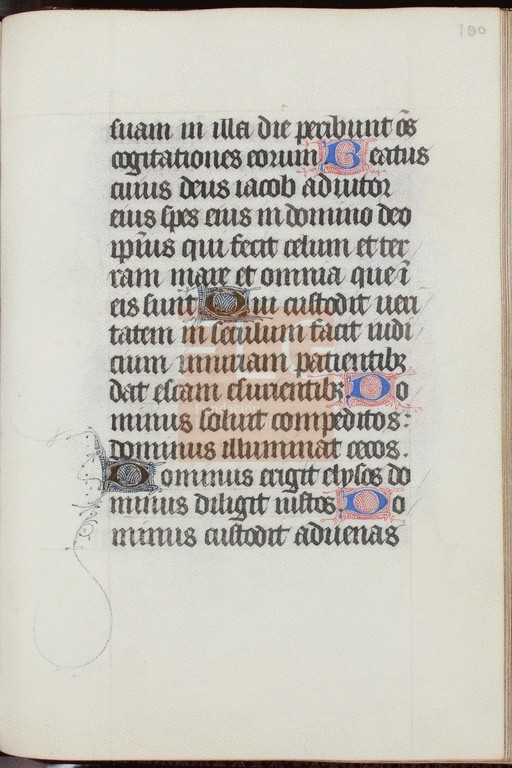 100
suam in illa die peribunt oēs
cogitationes eorum Beatus
cuius deus iacob adiutor
eius spes eius in domino deo
ipīus qui fecit celum et ter
ram mare et omnia que ī
eis sunt Qui custodit veri
tatem in seculum facit iudi
cium iniuriam patientibꝫ
dat escam esurientibꝫ Do
minus soluit compeditos:
dominus illuminat cecos.
Dominus erigit elysos do
minus diligit iustos. Do
minus custodit aduenas